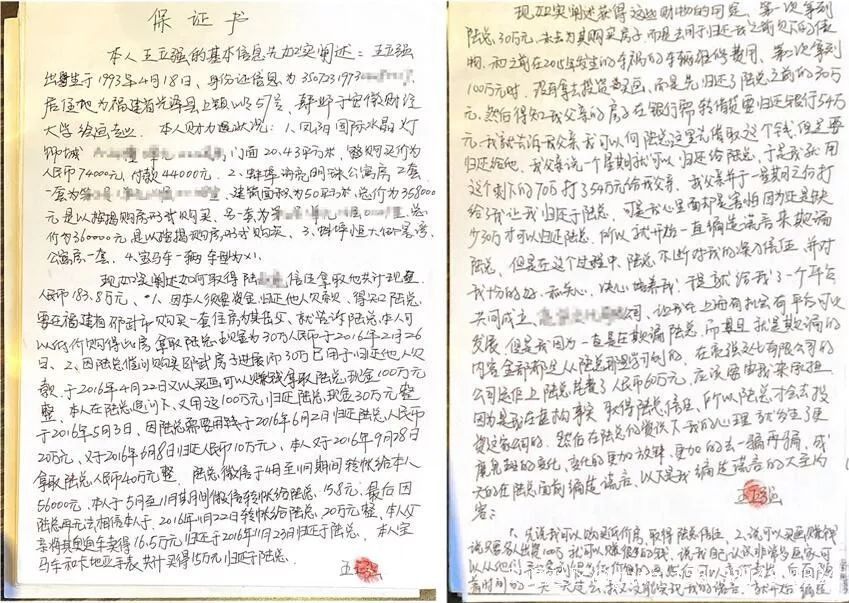 保证书
本人王立强的基本信息先如实阐述：王立强
出生于1993年4月18日，身份证信息为3507231973
居住地为福建省光泽县57号，就于安徽财经
大学绘画专业。本人财力过状况：1、凤阳国际水晶灯
饰城 门面20.43平方米，购买价为
人民币74000元，付款44000元。2、蚌埠明珠公寓房2套
一套为 ，建筑面积为50平方米，总价为358000
元是以按揭购房形式购买，另一套为 ，总
价为360000元是以按揭购房形式购买，3、蚌埠恒大
公寓房一套。4、宝马车一辆 车型为X1。
现如实阐述如何取得陆 信任拿取他共计现金
人民币183.8万元，1、因本人须要资金归还他人欠款，得知陆总
要在福建省邵武市购买一套住房为其岳父，就告诉陆总本人可
以低价购得此房拿取陆总现金为30万人民币于2016年2月26
日。2、因陆总催问购买邵武房子进展而30万已用于归还他人欠
款，于2016年4月22日又以买画可以赚钱拿取陆总现金100万元
整，本人在陆总追问下，又用这100万元归还陆总现金30万元整
于2016年5月3日，因陆总需要用钱于2016年6月2日归还陆总人民币
20万元，又于2016年6月8日归还人民币10万元，本人又于2016年9月28日
拿取陆总人民币40万元整。陆总微信于4月至11月期间转帐给本人
56000元，本人于5月至11月期间微信转帐给陆总15.8元，最后因
陆总再无法相信本人于2016年11月22日转帐给陆总20万元整，本人父
亲将其奥迪车卖得16.5万元归还于2016年11月23日归还于陆总，本人宝
马车和卡地亚手表共计买得15万元归还于陆总。
王立强
现如实阐述获得这些财物的用途，第一次拿到
陆总30万元，未去为其购买房子，而是去用于归还我之前欠下的债
务，和之前在2015年发生的车祸的车辆维修费用，第二次拿到
100万元时，没有拿去投资买画，而是先归还了陆总之前的30万
元，然后得知我父亲的房子在银行需转借贷要归还银行54万
元，我就告诉我父亲我可以向陆总这里先借取这个钱，但是要
归还给他，我父亲说一个星期就可以归还给陆总，于是我就用
这个剩下的70万打了54万元给我父亲，我父亲于一星期之后打
给了我让我归还于陆总，可是我心里面却是害怕因为还是缺
少30万才可以归还陆总，所以就开始一直编造谎言来欺骗
陆总，但是在这个过程中，陆总不断对我的深为信任，并对
我的好，和关心，决心培养我，于是就给我了一个平台
共同成立 公司，让我在上海有机会有平台可以
发展，但是我因为一直是在欺骗陆总，而且就是欺骗的
内容全部都是从陆总那里学到的，在 文化有限公司的
公司运作上陆总花费了人民币60万元，应该皆由我来承担
因为是我在虚构事实取得陆总信任，所以陆总才会去投
资这家公司的，然后在陆总的资说下我的心理就发生了更
的变化，变化的更加放肆，更加的去一骗再骗，成
天的在陆总面前编造谎言，以下是我编造谎言的大至内
容：
王立强
1、先说我可以购买低价房，取得陆总信任，2、说可以买画赚钱
说只要别人出资100万就可以赚很多的钱，说我自己认识非常多画家可
以从他们
着时间的一天一天过去，我又没能实现我的诺言，就开始编造